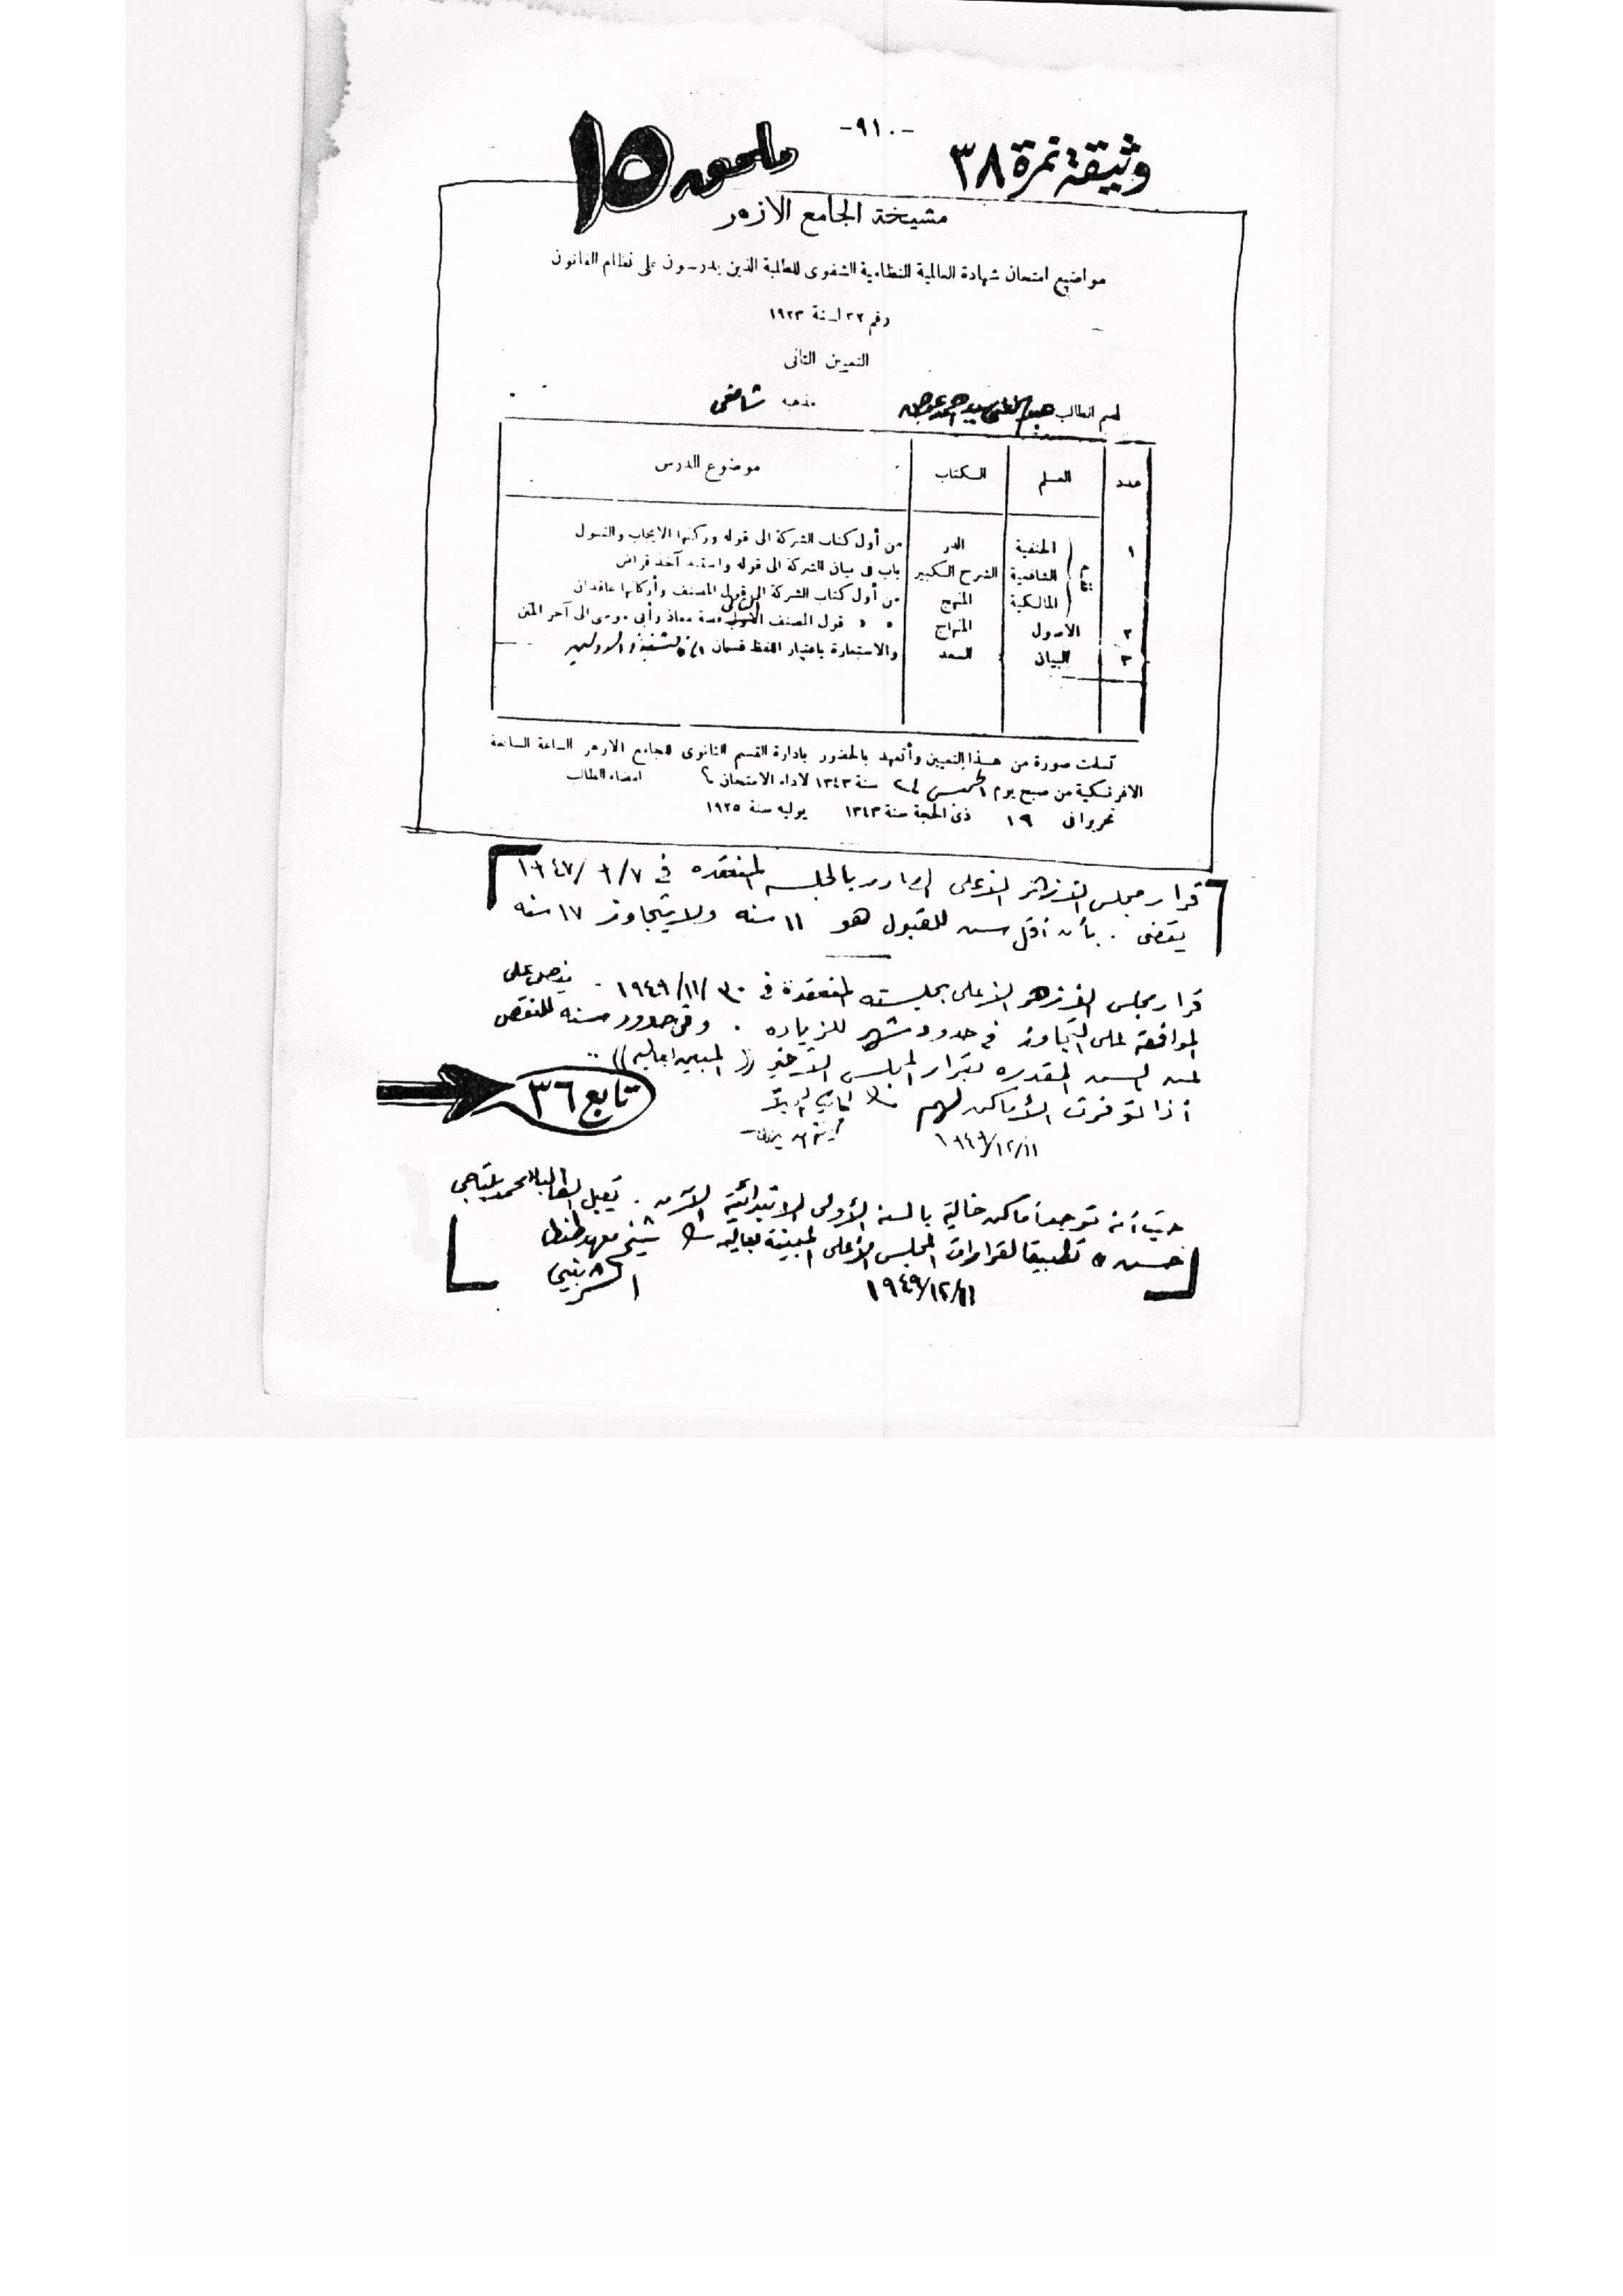 -٩١٠-
وثيقة نمرة ٣٨
ملحق ١٥
مشيخة الجامع الازهر
مواضيع امتحان شهادة العالمية النظامية الشفوى للطلبة الذين يدرسون على نظام القانون
رقم ٣٢ لسنة ١٩٢٣
التعيين الثانى
اسم الطالب سيد احمد عوض مذهبه شافعى
عدد العلم الكتاب موضوع الدرس
١ الحنفية الدر من أول كتاب الشركة الى قوله وركنها الايجاب والقبول
الشافعية الشرح الكبير باب فى بيان الشركة الى قوله واستبد آخذ قراض
المالكية المنهج من أول كتاب الشركة الى قول المصنف وأركانها عاقدان
٢ الاصول المنهاج » » قول المصنف قصة معاذ وأبى موسى الى آخر المتن
٣ البيان السعد والاستعارة باعتبار اللفظ قسمان
تسلمت صورة من هذا التعيين وأتعهد بالحضور بادارة القسم الثانوى للجامع الازهر الساعة السابعة
الافرنكية من صبح يوم الخميس سنة ١٣٤٣ لاداء الامتحان امضاء الطالب
تحريرا فى ١٩ ذى الحجة سنة ١٣٤٣ يوليه سنة ١٩٢٥
قرار مجلس الازهر الاعلى الصادر بالجلسه المنعقده فى
يقضى . بأن أقل سن للقبول هو ١١ سنه ولا يتجاوز ١٧ سنه
قرار مجلس الازهر الاعلى بجلسته المنعقدة فى ٣٠/١١/١٩٤٩ . ينص على
الموافقه على التجاوز فى حدود شهر للزياده . وفى حدود سنه للنقص
من السن المقدره بقرار المجلس الأخير (( المبين اعاليه )) ..
أذا توفرت الأماكن لهم
١١/١٢/١٩٤٩
تابع ٣٦
حيث أنه توجد أماكن خالية بالسنة الأولى الابتدائية الآن . يقبل الطالب محمد بلتاجى
حسن ، تطبيقا لقرارات المجلس الأعلى المبينة بعاليه شيخ معهد طنطا
١١/١٢/١٩٤٩ الشربينى